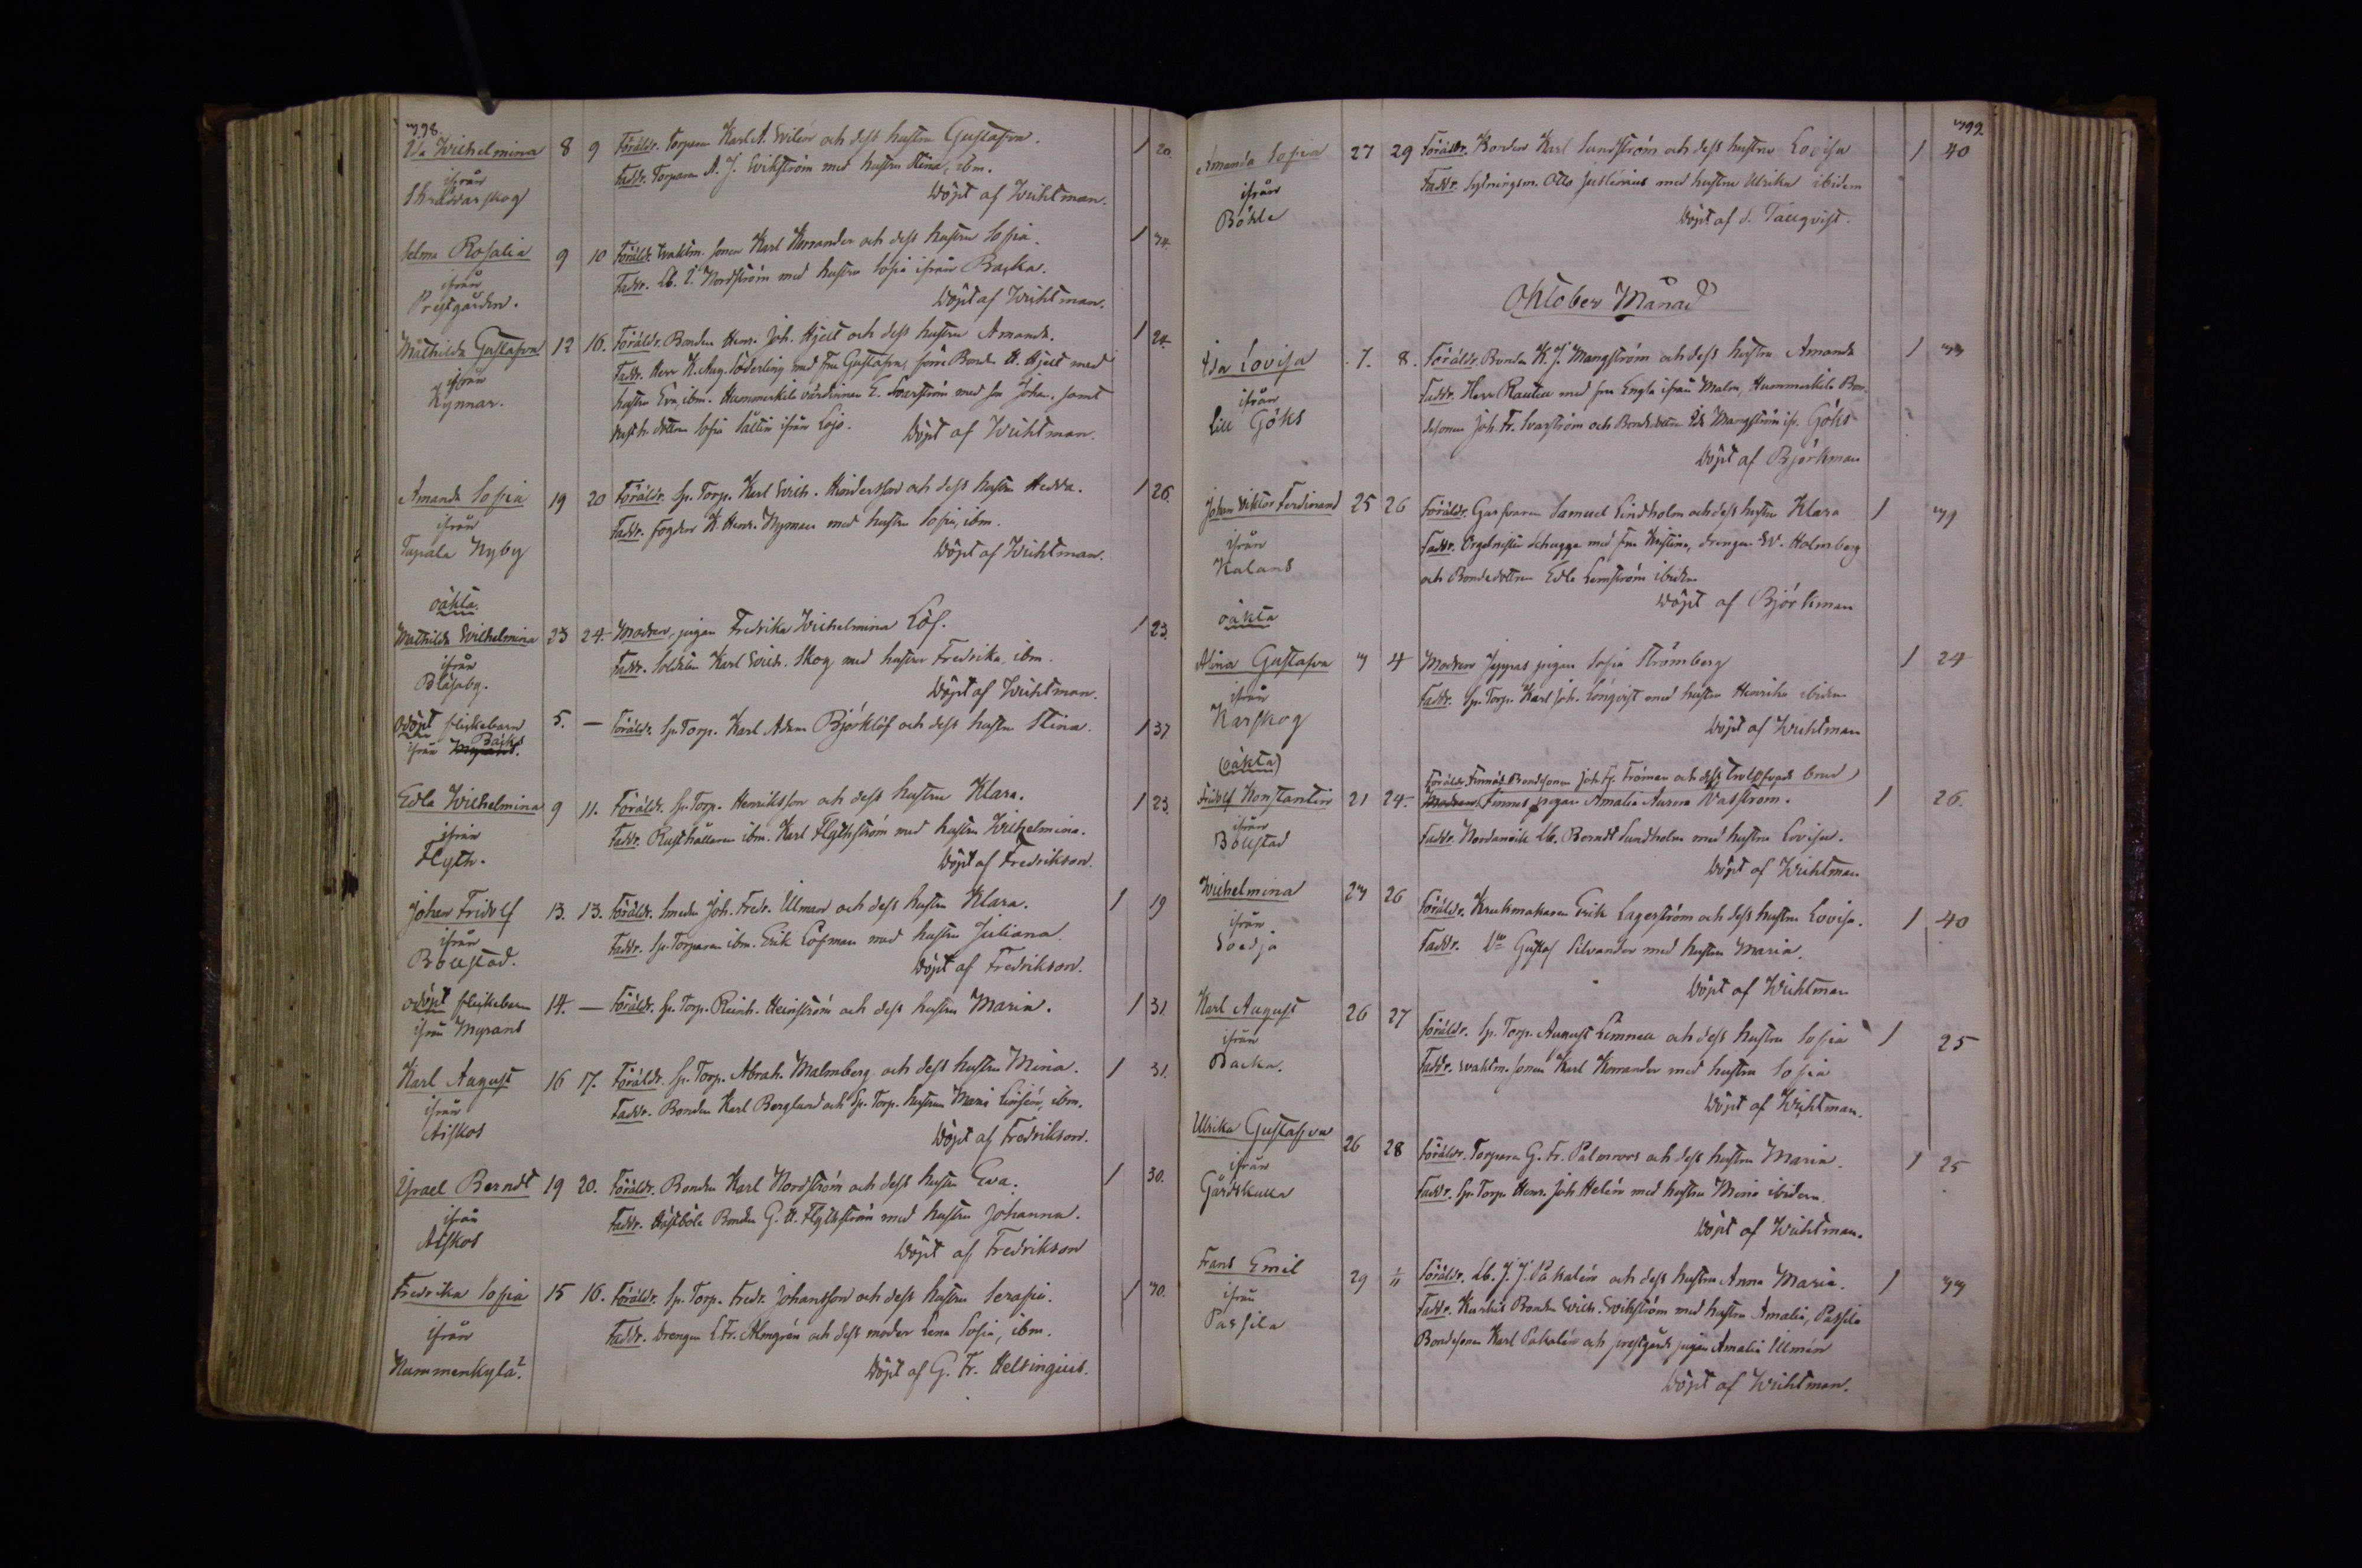 398.
Ida Wilhelmina 8 9 Föräldr. Torparen Karl A. Wilén och dess hustru Gustafva. 1 20.
ifrån Faddr. Torparen A. J. Wikström med hustru Stina, ibm.
Skräddarskog Döpt af Wichtman.
Selma Rosalia 9 10 Föräldr. Waktm. sonen Karl Korander och dess hustru Sofia. 1 34.
ifrån Faddr. Lb. I. Nordström med hustru Sofia ifrån Backa.
Prestgården. Döpt af Wichtman.
Mathilda Gustafva 12 16. Föräldr. Bonden Henr. Joh. Hjelt och dess hustru Amanda. 1 24.
ifrån Faddr. Herr K. Aug. Söderling med fru Gustafva, förre Bond. H. Hjelt med
Kynnar. hustru Eva, ibm. Hummerkila värdinnan E. Svarström med son Johan, samt
dottren Sofia ifrån Lojo. Döpt af Wichtman.
Amanda Sofia 19 20 Föräldr. Sp. Torp. Karl Wilh. Hindersson och dess hustru Hedda. 1 26.
ifrån Faddr. Fogden K. Henr. Nyman med hustru Sofia, ibm.
Tupala Nyby Döpt af Wichtman.
oäkta.
Mathilda Wilhelmina 23 24. Modren, pigan Fredrika Wilhelmina Löf. 1 23.
ifrån Faddr. Soldaten Karl Wilh. Skog med hustru Fredrika, ibm.
Bläsaby. Döpt af Wichtman.
Odöpt flickebarn 5. — Föräldr. Sp. Torp. Karl Adam Björklöf och dess hustru Stina. 1 37
ifrån Myrans. Backa
Edla Wilhelmina 9 11. Föräldr. Sp. Torp. Henriksson och dess hustru Klara. 1 23.
ifrån Faddr. Rusthållaren ibm. Karl Flythström med hustru Wilhelmina.
Flyth. Döpt af Fredrikson.
Johan Fridolf 13. 13. Föräldr. Smeden Joh. Fredr. Ulman och dess hustru Klara. 1 19
ifrån Faddr. Sp. Torparen ibm. Erik Löfman med hustru Juliana.
Bollstad. Döpt af Fredrikson.
odöpt flickebarn 14. — Föräldr. Sp. Torp. Reinh. Heinström och dess hustru Maria. 1 31.
ifrån Myrans
Karl August 16 17. Föräldr. Sp. Torp. Abrah. Malmberg och dess hustru Mina. 1 31.
ifrån Faddr. Bonden Karl Berglund och Sp. Torp. hustrun Maria Linsén, ibm.
Aiskos Döpt af Fredrikson.
Israel Berndt 19 20. Föräldr. Bonden Karl Nordström och dess hustru Eva. 1 30.
ifrån Faddr. Västböle Bonden G. A. Flythström med hustru Johanna.
Aiskos Döpt af Fredrikson
Fredrika Sofia 15 16. Föräldr. Sp. Torp. Fredr. Johansson och dess hustru Serafia. 1 30.
ifrån Faddr. Drengen C. Fr. Almgrén och dess moder Lena Sofia, ibm.
Nummenkylä. Döpt af G. Fr. Helsingius.
399.
Amanda Sofia 27 29 Föräldr. Karl Sundström och dess hustru Lovisa 1 40
ifrån Faddr. Sytningsm. Otto Juslenius med hustru Ulrika ibidem
Böhle Döpt af d. Tallqvist.
Oktober Månad
Ida Lovisa 7. 8. Föräldr. Bonden K. J. Mangström och dess hustru Amanda 1 33
ifrån Faddr. Herr Rautell med fru Engla ifrån Malm, Hummerkila Bon-
Lill Göks desonen Joh. Fr. Svarström och Bondedottren Ida Mangström ifr. Göks
Döpt af Björkman
Johan Viktor Ferdinand 25 26 Föräldr. Garfvaren Samuel Lindholm och dess hustru Klara 1 39
ifrån Faddr. Orgelnisten Schugge med fru Kristina, drengen W. Holmberg
Kalans och Bondedottren Edla Lemström ibidem
Döpt af Björkman
oäkta
Alina Gustafva 3 4 Modren Jyppas pigan Sofia Strömberg 1 24
ifrån Faddr. Sp. Torp. Karl Joh. Lönqvist med hustru Henrika ibidem
Karskog Döpt af Wichtman
(oäkta) Föräldr. Finnäs Bondsonen Joh. Fr. Fröman och dess trolofvade brud,
Fridolf Konstantin 21 24. Modren, Finnäs pigan Amalia Aurora Vasström. 1 26.
ifrån Faddr. Nordanvik Lb. Berndt Sundholm med hustru Lovisa.
Bollstad Döpt af Wichtman
Wilhelmina 23 26 Föräldr. Krukmakaren Erik Lagerström och dess hustru Lovisa. 1 40
ifrån Faddr. Dto Gustaf Silvander med hustru Maria.
Soldja Döpt af Wichtman
Karl August 26 27 Föräldr. Sp. Torp. August Limnell och dess hustru Sofia 1 25
ifrån Faddr. Waktm. sonen Karl Korander med hustru Sofia
Backa. Döpt af Wichtman.
Ulrika Gustafva 26 28 Föräldr. Torparen G. Fr. Palmroos och dess hustru Maria. 1 25
ifrån Faddr. Sp. Torp. Henr. Joh. Helén med hustru Mina ibidem.
Gårdskulla Döpt af Wichtman.
Frans Emil 29 1/11 Föräldr. Lb. J. J. Pakalén och dess hustru Anna Maria. 1 33
ifrån Faddr. Kurkis Bonden Wilh. Wikström med hustru Amalia, Passila
Passila Bondesonen Karl Pakalén och prestgårds pigan Amalia Ulmén
Döpt af Wichtman.